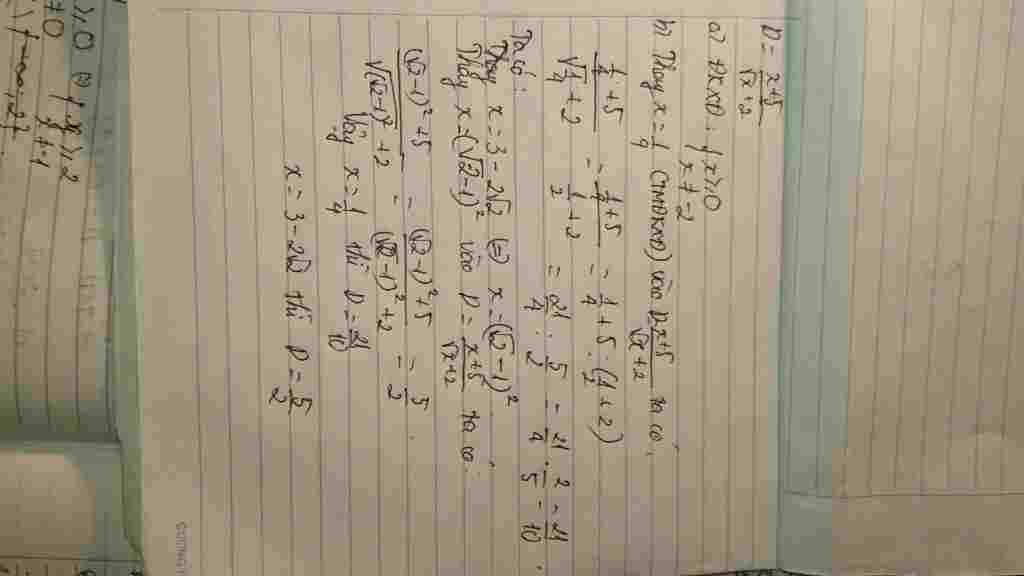 D = \frac{x+5}{\sqrt{x}+2}
a) ĐKXĐ: { x ≥ 0
x ≠ -2
b) Thay x = \frac{1}{4} (TMĐKXĐ) vào D = \frac{x+5}{\sqrt{x}+2} ta có:
\frac{\frac{1}{4}+5}{\sqrt{\frac{1}{4}}+2} = \frac{\frac{1}{4}+5}{\frac{1}{2}+2} = \frac{1}{4}+5 : (\frac{1}{2}+2)
= \frac{21}{4} : \frac{5}{2} = \frac{21}{4} \cdot \frac{2}{5} = \frac{21}{10}.
Ta có:
x = 3 - 2\sqrt{2} (=) x = (\sqrt{2}-1)^2
Thay x = (\sqrt{2}-1)^2 vào D = \frac{x+5}{\sqrt{x}+2} ta có:
\frac{(\sqrt{2}-1)^2+5}{\sqrt{(\sqrt{2}-1)^2}+2} = \frac{(\sqrt{2}-1)^2+5}{(\sqrt{2}-1)^2+2} = \frac{5}{2}.
Vậy x = \frac{1}{4} thì D = \frac{21}{10}
x = 3 - 2\sqrt{2} thì D = \frac{5}{2}